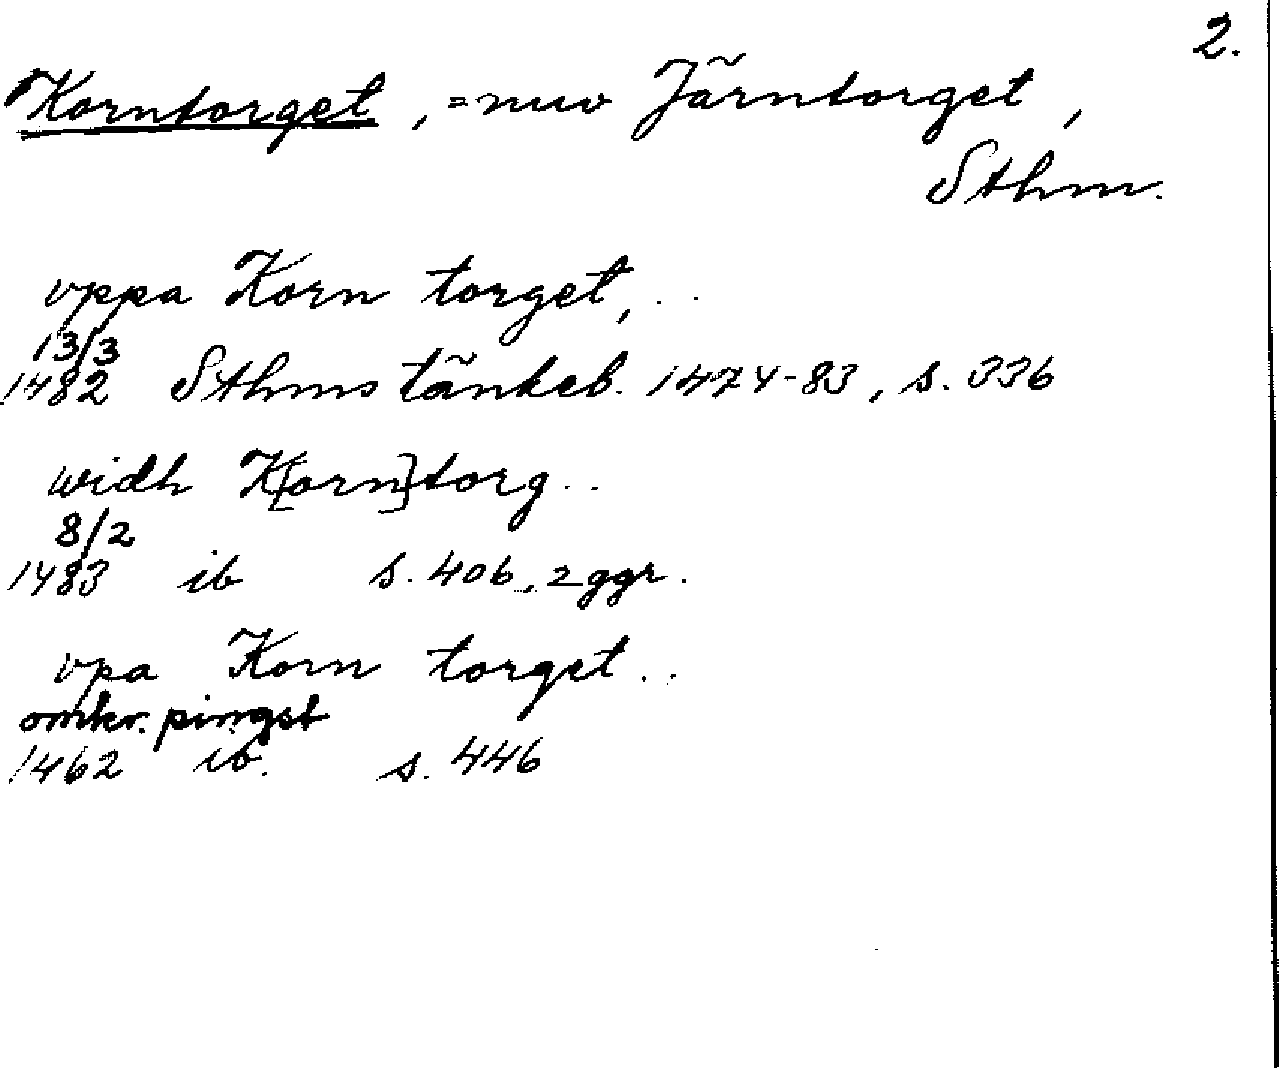 2.
Korntorget, = nuv Järntorget,
Sthm.
vppa Korn torget, ..
13/3
1482 Sthms tänkeb. 1474-83, s. 336
widh K[orn]torg ..
8/2
1483 ib s. 406, 2 ggr.
vpa Korn torget ..
omkr. pingst
1462 ib. s. 446